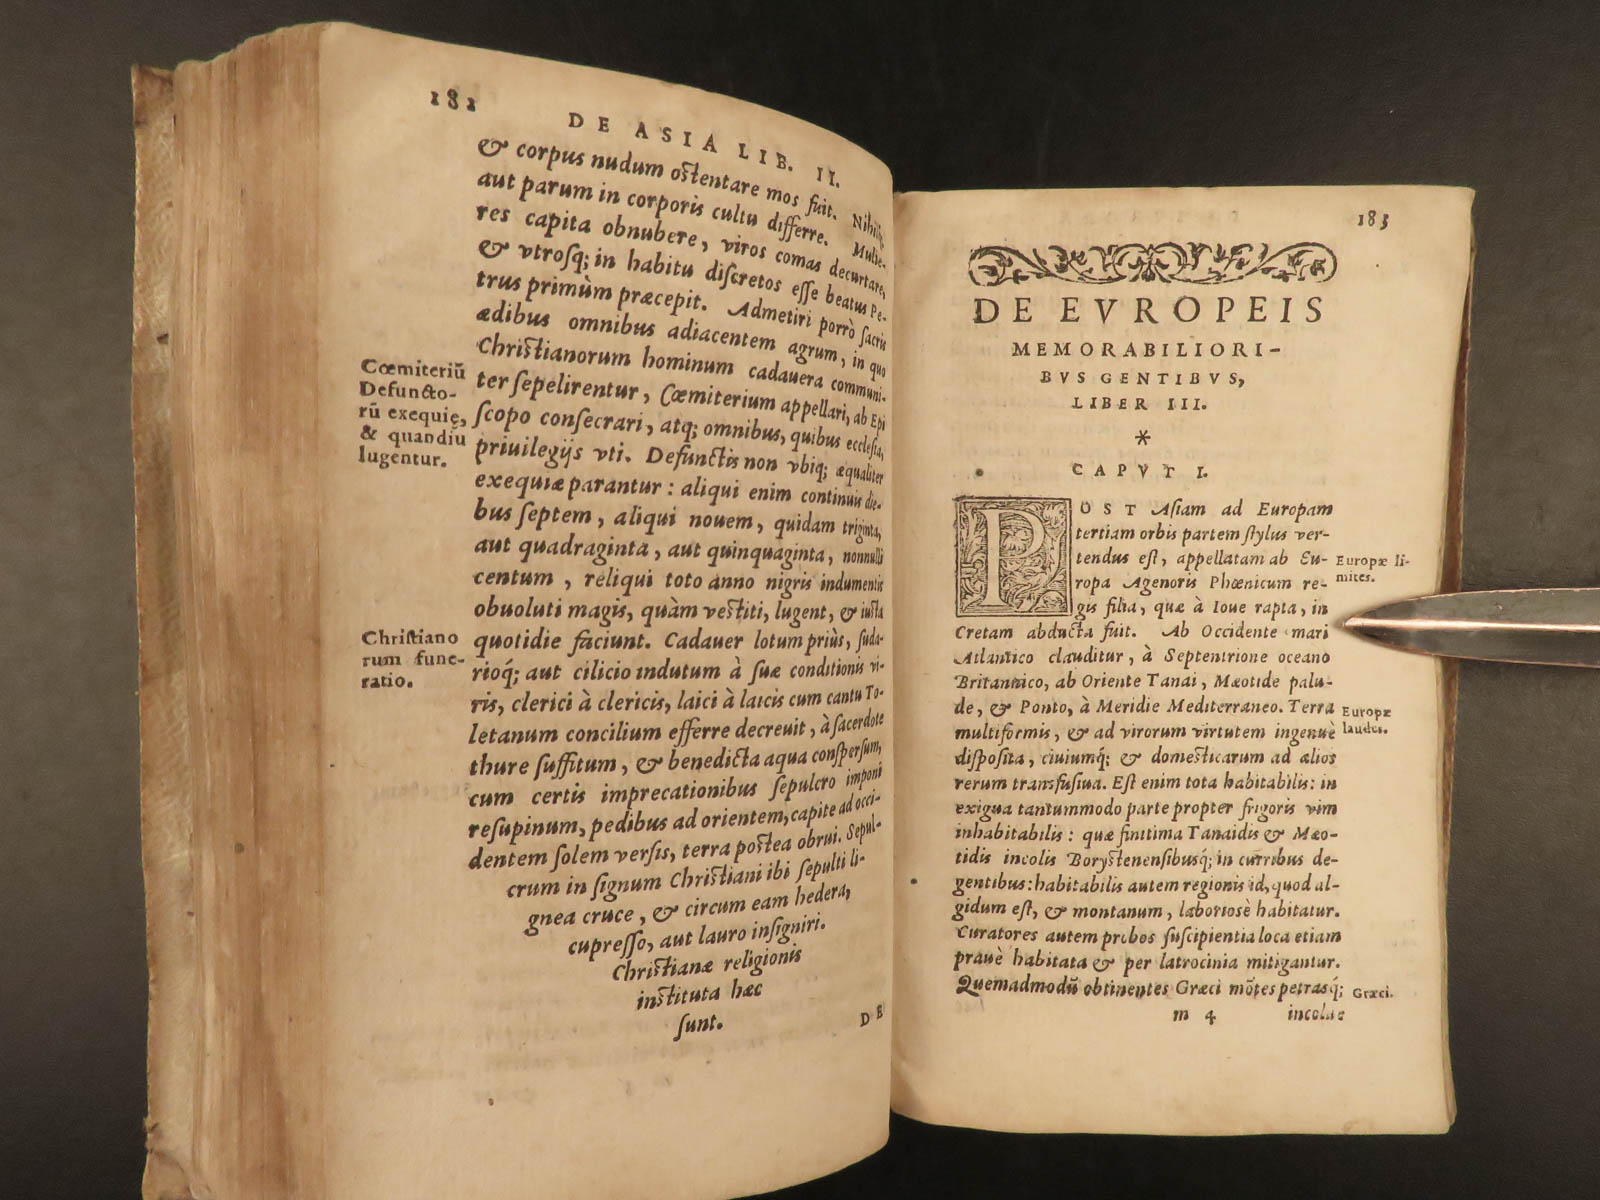 182
DE ASIA LIB. II.
& corpus nudum ostentare mos fuit. Nihilq;
aut parum in corporis cultu differre. Mulie-
res capita obnubere, viros comas decurtare,
& vtrosq; in habitu discretos esse beatus Pe-
trus primùm præcepit. Admetiri porrò sacris
ædibus omnibus adiacentem agrum, in quo
Christianorum hominum cadauera communi-
ter sepelirentur, Cœmiterium appellari, ab Epi
scopo consecrari, atq; omnibus, quibus ecclesia,
priuilegijs vti. Defunctis non vbiq; æqualiter
exequiæ parantur: aliqui enim continuis die-
bus septem, aliqui nouem, quidam triginta,
aut quadraginta, aut quinquaginta, nonnulli
centum, reliqui toto anno nigris indumentis
obuoluti magis, quàm vestiti, lugent, & iusta
quotidie faciunt. Cadauer lotum priùs, suda-
rioq́; aut cilicio indutum à suæ conditionis vi-
ris, clerici à clericis, laici à laicis cum cantu To-
letanum concilium efferre decreuit, à sacerdote
thure suffitum, & benedicta aqua conspersum,
cum certis imprecationibus sepulcro imponi
resupinum, pedibus ad orientem, capite ad occi-
dentem solem versis, terra postea obrui. Sepul-
crum in signum Christiani ibi sepulti li-
gnea cruce, & circum eam hedera,
cupresso, aut lauro insigniri.
Christianæ religionis
instituta hæc
sunt.
DE
Cœmiteriũ
Defuncto-
rũ exequię,
& quandiu
lugentur.
Christiano
rum fune-
ratio.
183
DE EVROPEIS
MEMORABILIORI-
BVS GENTIBVS,
LIBER III.
*
CAPVT I.
POST Asiam ad Europam
tertiam orbis partem stylus ver-
tendus est, appellatam ab Eu-
ropa Agenoris Phœnicum re-
gis filia, quæ à Ioue rapta, in
Cretam abducta fuit. Ab Occidente mari
Atlantico clauditur, à Septentrione oceano
Britannico, ab Oriente Tanai, Mæotide palu-
de, & Ponto, à Meridie Mediterraneo. Terra
multiformis, & ad virorum virtutem ingenuè
disposita, ciuiumq́; & domesticarum ad alios
rerum transfusiua. Est enim tota habitabilis: in
exigua tantummodo parte propter frigoris vim
inhabitabilis: quæ finitima Tanaidis & Mæo-
tidis incolis Borystenensibusq́; in curribus de-
gentibus: habitabilis autem regionis id, quod al-
gidum est, & montanum, laboriosè habitatur.
Curatores autem probos suscipientia loca etiam
prauè habitata & per latrocinia mitigantur.
Quemadmodũ obtinentes Græci mõtes petrasq́;
m 4
incolæ
Europæ li-
mites.
Europæ
laudes.
Græci.